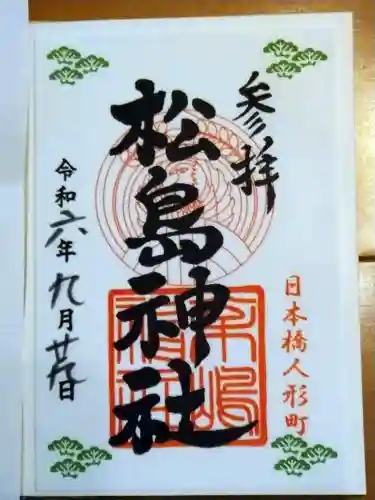 参拝
日本橋人形町
松島神社
令和六年九月廿九日